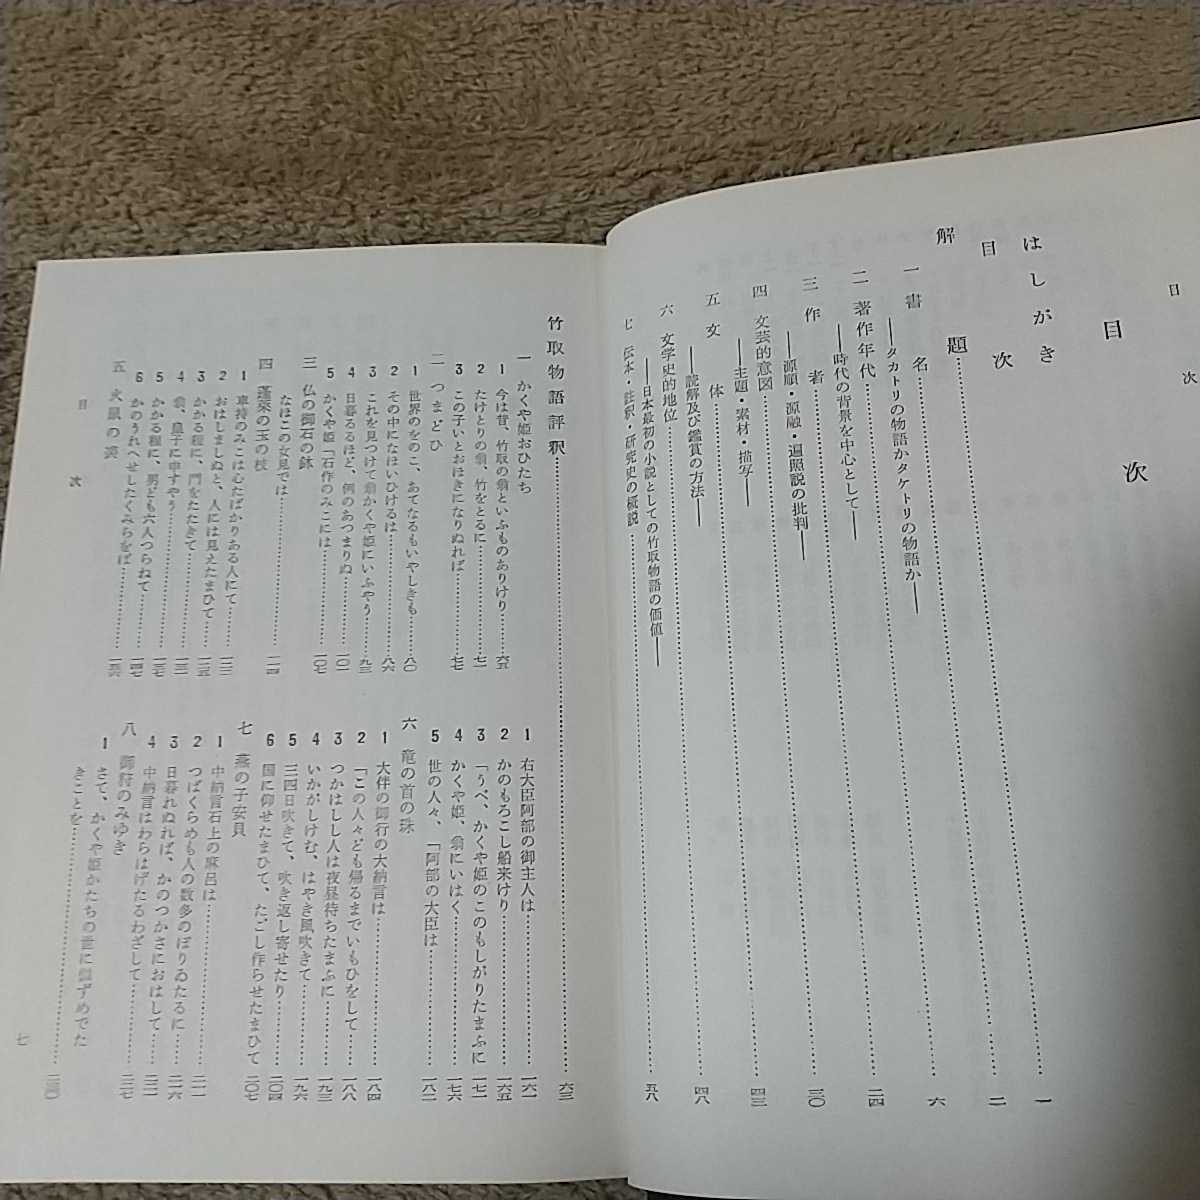 目次
目次
はしがき……一
目次……二
解題
一 書名……六
――タカトリの物語かタケトリの物語か――
二 著作年代……二四
――時代の背景を中心として――
三 作者……三〇
――源順・源融・遍照説の批判――
四 文芸的意図……四三
――主題・素材・描写――
五 文体……四八
――読解及び鑑賞の方法――
六 文学史的地位
――日本最初の小説としての竹取物語の価値――
七 伝本・註釈・研究史の概説……五八
竹取物語評釈……六三
一 かくや姫おひたち
1 今は昔、竹取の翁といふものありけり……六五
2 たけとりの翁、竹をとるに……七一
3 この子いとおほきになりぬれば……七七
二 つまどひ
1 世界のをのこ、あてなるもいやしきも……八〇
2 その中になほいひけるは……八六
3 これを見つけて翁かくや姫にいふやう……九三
4 日暮るるほど、例のあつまりぬ……一〇一
5 かくや姫「石作のみこには……一〇七
三 仏の御石の鉢
なほこの女見では……一一四
四 蓬萊の玉の枝
1 車持のみこは心たばかりある人にて……一二三
2 おはしましぬと、人には見えたまひて……一三五
3 かかる程に、門をたたきて
4 翁、皇子に申すやう
5 かかる程に、男ども六人つらねて
6 かのうれへせしたくみらをば
五 火鼠の裘
1 右大臣阿部の御主人は……一六一
2 かのもろこし船来けり……一六五
3 「うべ、かくや姫のこのもしがりたまふに……一七一
4 かくや姫、翁にいはく……一七六
5 世の人々、「阿部の大臣は……一八二
六 竜の首の珠
1 大伴の御行の大納言は……一八四
2 「この人々ども帰るまでいもひをして……一八八
3 つかはしし人は夜昼待ちたまふに……一九三
4 いかがしけむ、はやき風吹きて……一九六
5 三四日吹きて、吹き返し寄せたり……二〇四
6 国に仰せたまひて、たごし作らせたまひて……二〇七
七 燕の子安貝
1 中納言石上の麻呂は……二一一
2 つばくらめも人の数多のぼりゐたるに……二一六
3 日暮れぬれば、かのつかさにおはして……二二一
4 中納言はわらはげたるわざして……二二七
八 御狩のみゆき
1 さて、かくや姫かたちの世に似ずめでた
きことを……二三〇
目次
七